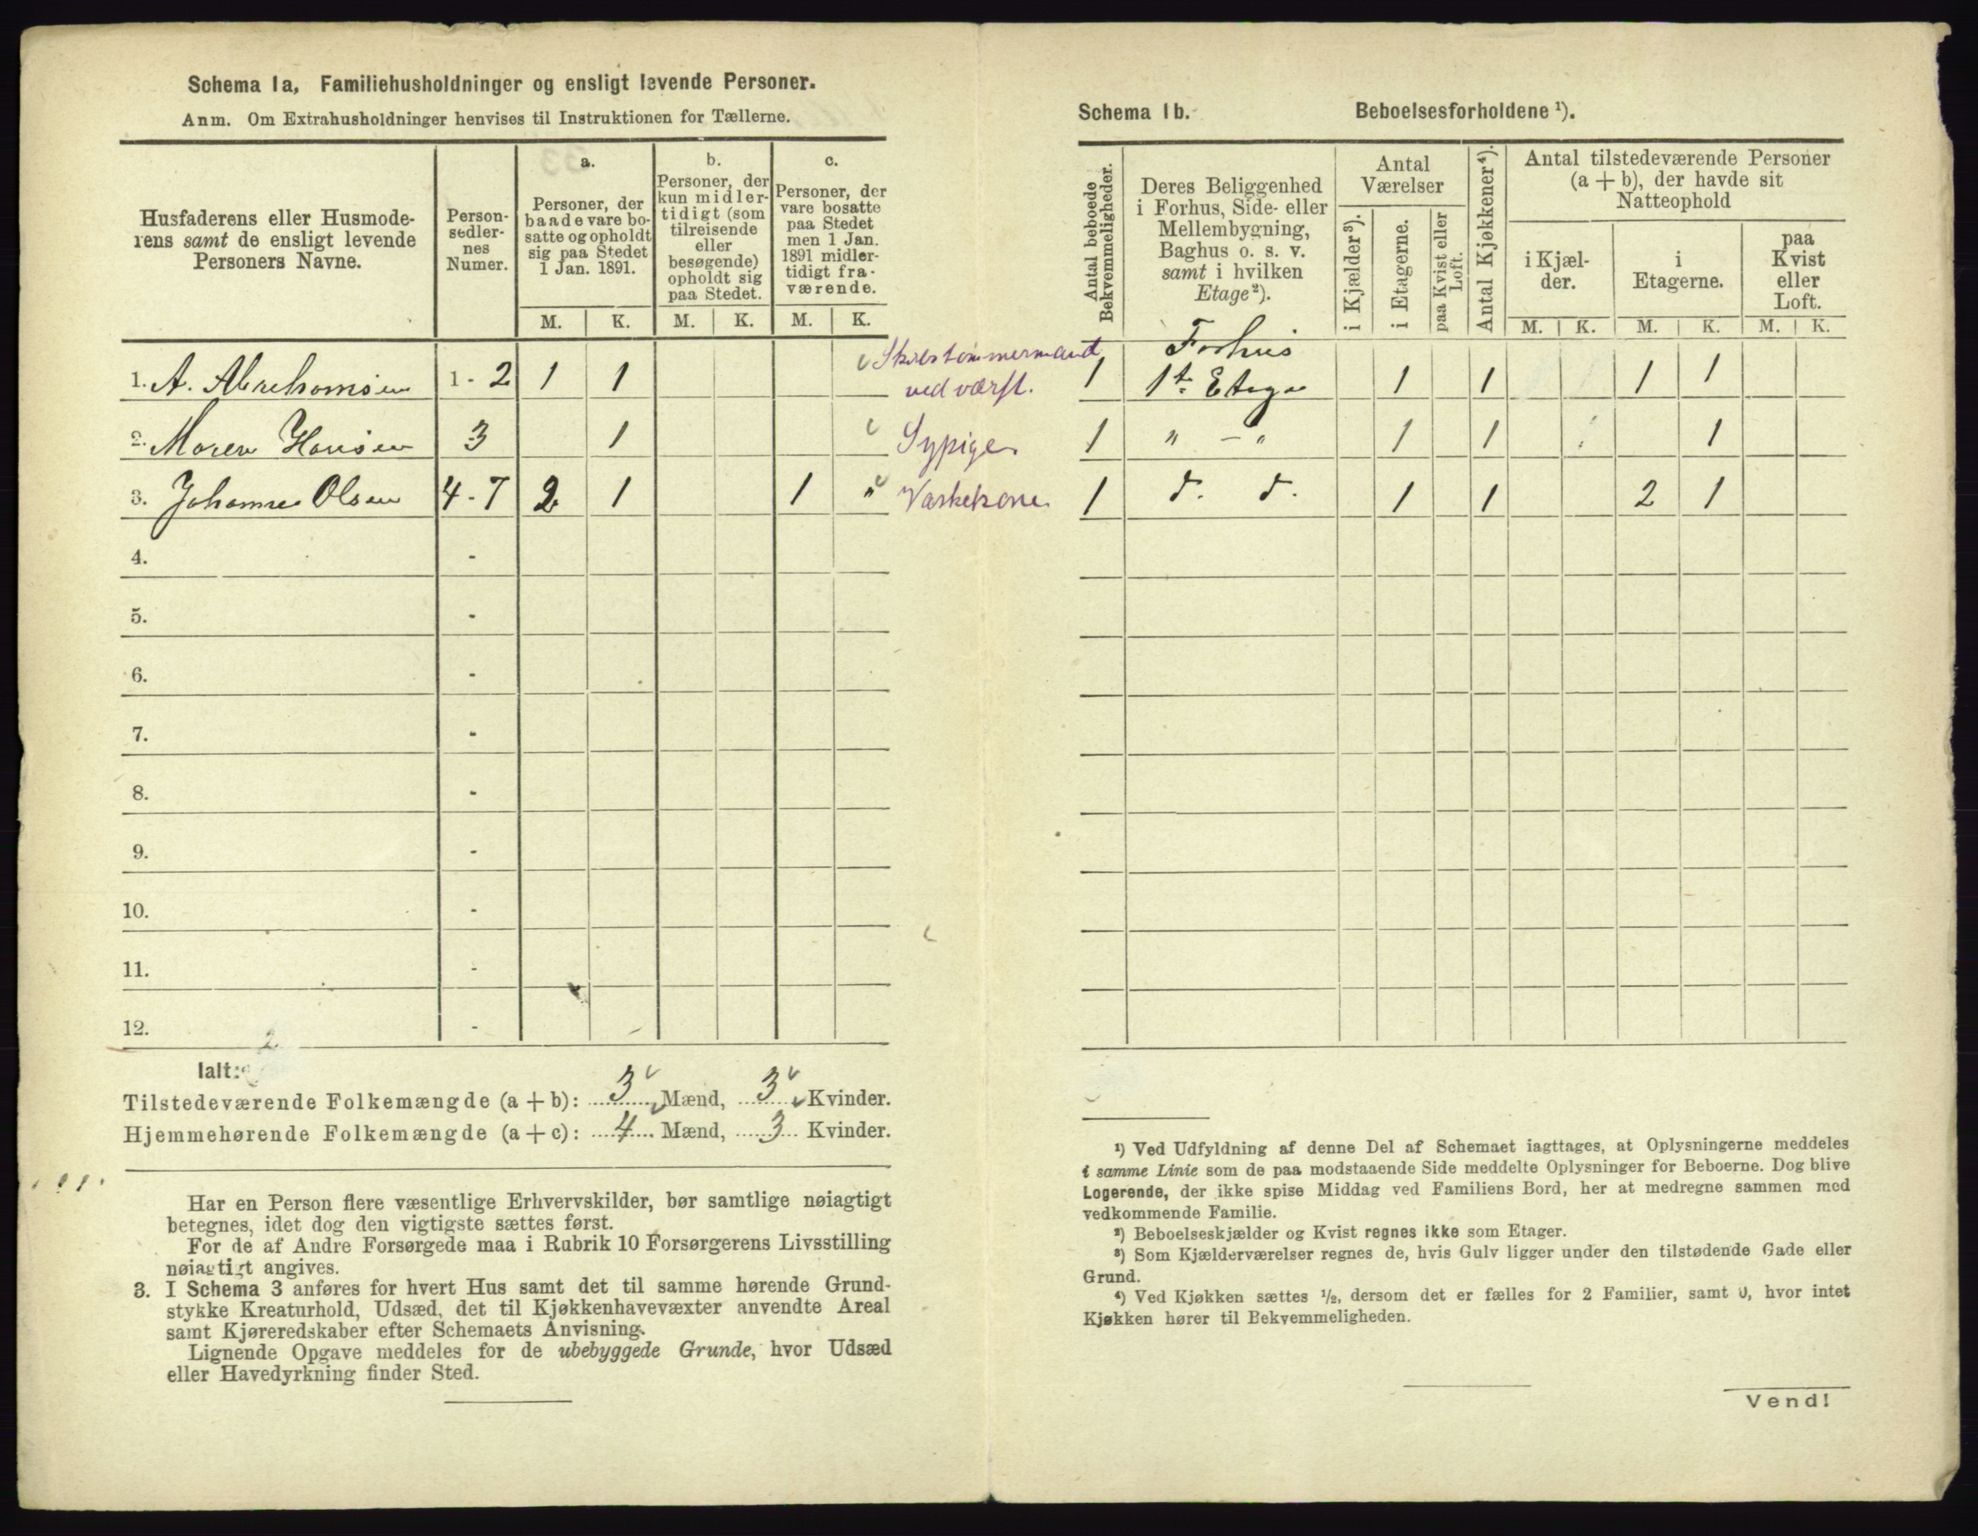 Schema 1a, Familiehusholdninger og ensligt levende Personer.
Anm. Om Extrahusholdninger henvises til Instruktionen for Tællerne.
Husfaderens eller Husmode-
rens samt de ensligt levende
Personers Navne.
Person-
sedler-
nes
Numer.
a.
Personer, der
baade vare bo-
satte og opholdt
sig paa Stedet
1 Jan. 1891.
b.
Personer, der
kun midler-
tidigt (som
tilreisende
eller
besøgende)
opholdt sig
paa Stedet.
c.
Personer, der
vare bosatte
paa Stedet
men 1 Jan.
1891 midler-
tidigt fra-
værende.
M. K. M. K. M. K.
1. A. Abrahamsen 1 - 2 1 1 Skibstømmermand
ved værft.
2. Maren Hansen 3 1 Sypige
3. Johanne Olsen 4 - 7 2 1 1 " Vaskekone
4. -
5. -
6. -
7. -
8. -
9. -
10. -
11. -
12. -
2
Ialt:
Tilstedeværende Folkemængde (a + b): 3 Mænd, 3 Kvinder.
Hjemmehørende Folkemængde (a + c): 4 Mænd, 3 Kvinder.
Har en Person flere væsentlige Erhvervskilder, bør samtlige nøiagtigt
betegnes, idet dog den vigtigste sættes først.
For de af Andre Forsørgede maa i Rubrik 10 Forsørgerens Livsstilling
nøiagtigt angives.
3. I Schema 3 anføres for hvert Hus samt det til samme hørende Grund-
stykke Kreaturhold, Udsæd, det til Kjøkkenhavevæxter anvendte Areal
samt Kjøreredskaber efter Schemaets Anvisning.
Lignende Opgave meddeles for de ubebyggede Grunde, hvor Udsæd
eller Havedyrkning finder Sted.
Schema 1b. Beboelsesforholdene ¹).
Antal beboede
Bekvemmeligheder.
Deres Beliggenhed
i Forhus, Side- eller
Mellembygning,
Baghus o. s. v.
samt i hvilken
Etage²).
Antal
Værelser
i Kjælder³).
i Etagerne.
paa Kvist eller
Loft.
Antal Kjøkkener⁴).
Antal tilstedeværende Personer
(a + b), der havde sit
Natteophold
i Kjæl-
der.
i
Etagerne.
paa
Kvist
eller
Loft.
M. K. M. K. M. K.
Forhus
1 1te Etage 1 1 1 1
1 " — " 1 1 1
1 d. d. 1 1 2 1
¹) Ved Udfyldning af denne Del af Schemaet iagttages, at Oplysningerne meddeles
i samme Linie som de paa modstaaende Side meddelte Oplysninger for Beboerne. Dog blive
Logerende, der ikke spise Middag ved Familiens Bord, her at medregne sammen med
vedkommende Familie.
²) Beboelseskjælder og Kvist regnes ikke som Etager.
³) Som Kjælderværelser regnes de, hvis Gulv ligger under den tilstødende Gade eller
Grund.
⁴) Ved Kjøkken sættes ½, dersom det er fælles for 2 Familier, samt 0, hvor intet
Kjøkken hører til Bekvemmeligheden.
Vend!